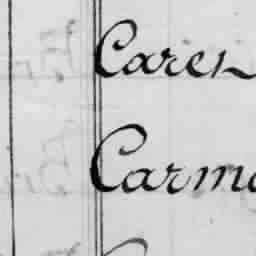 Caren
Carmo